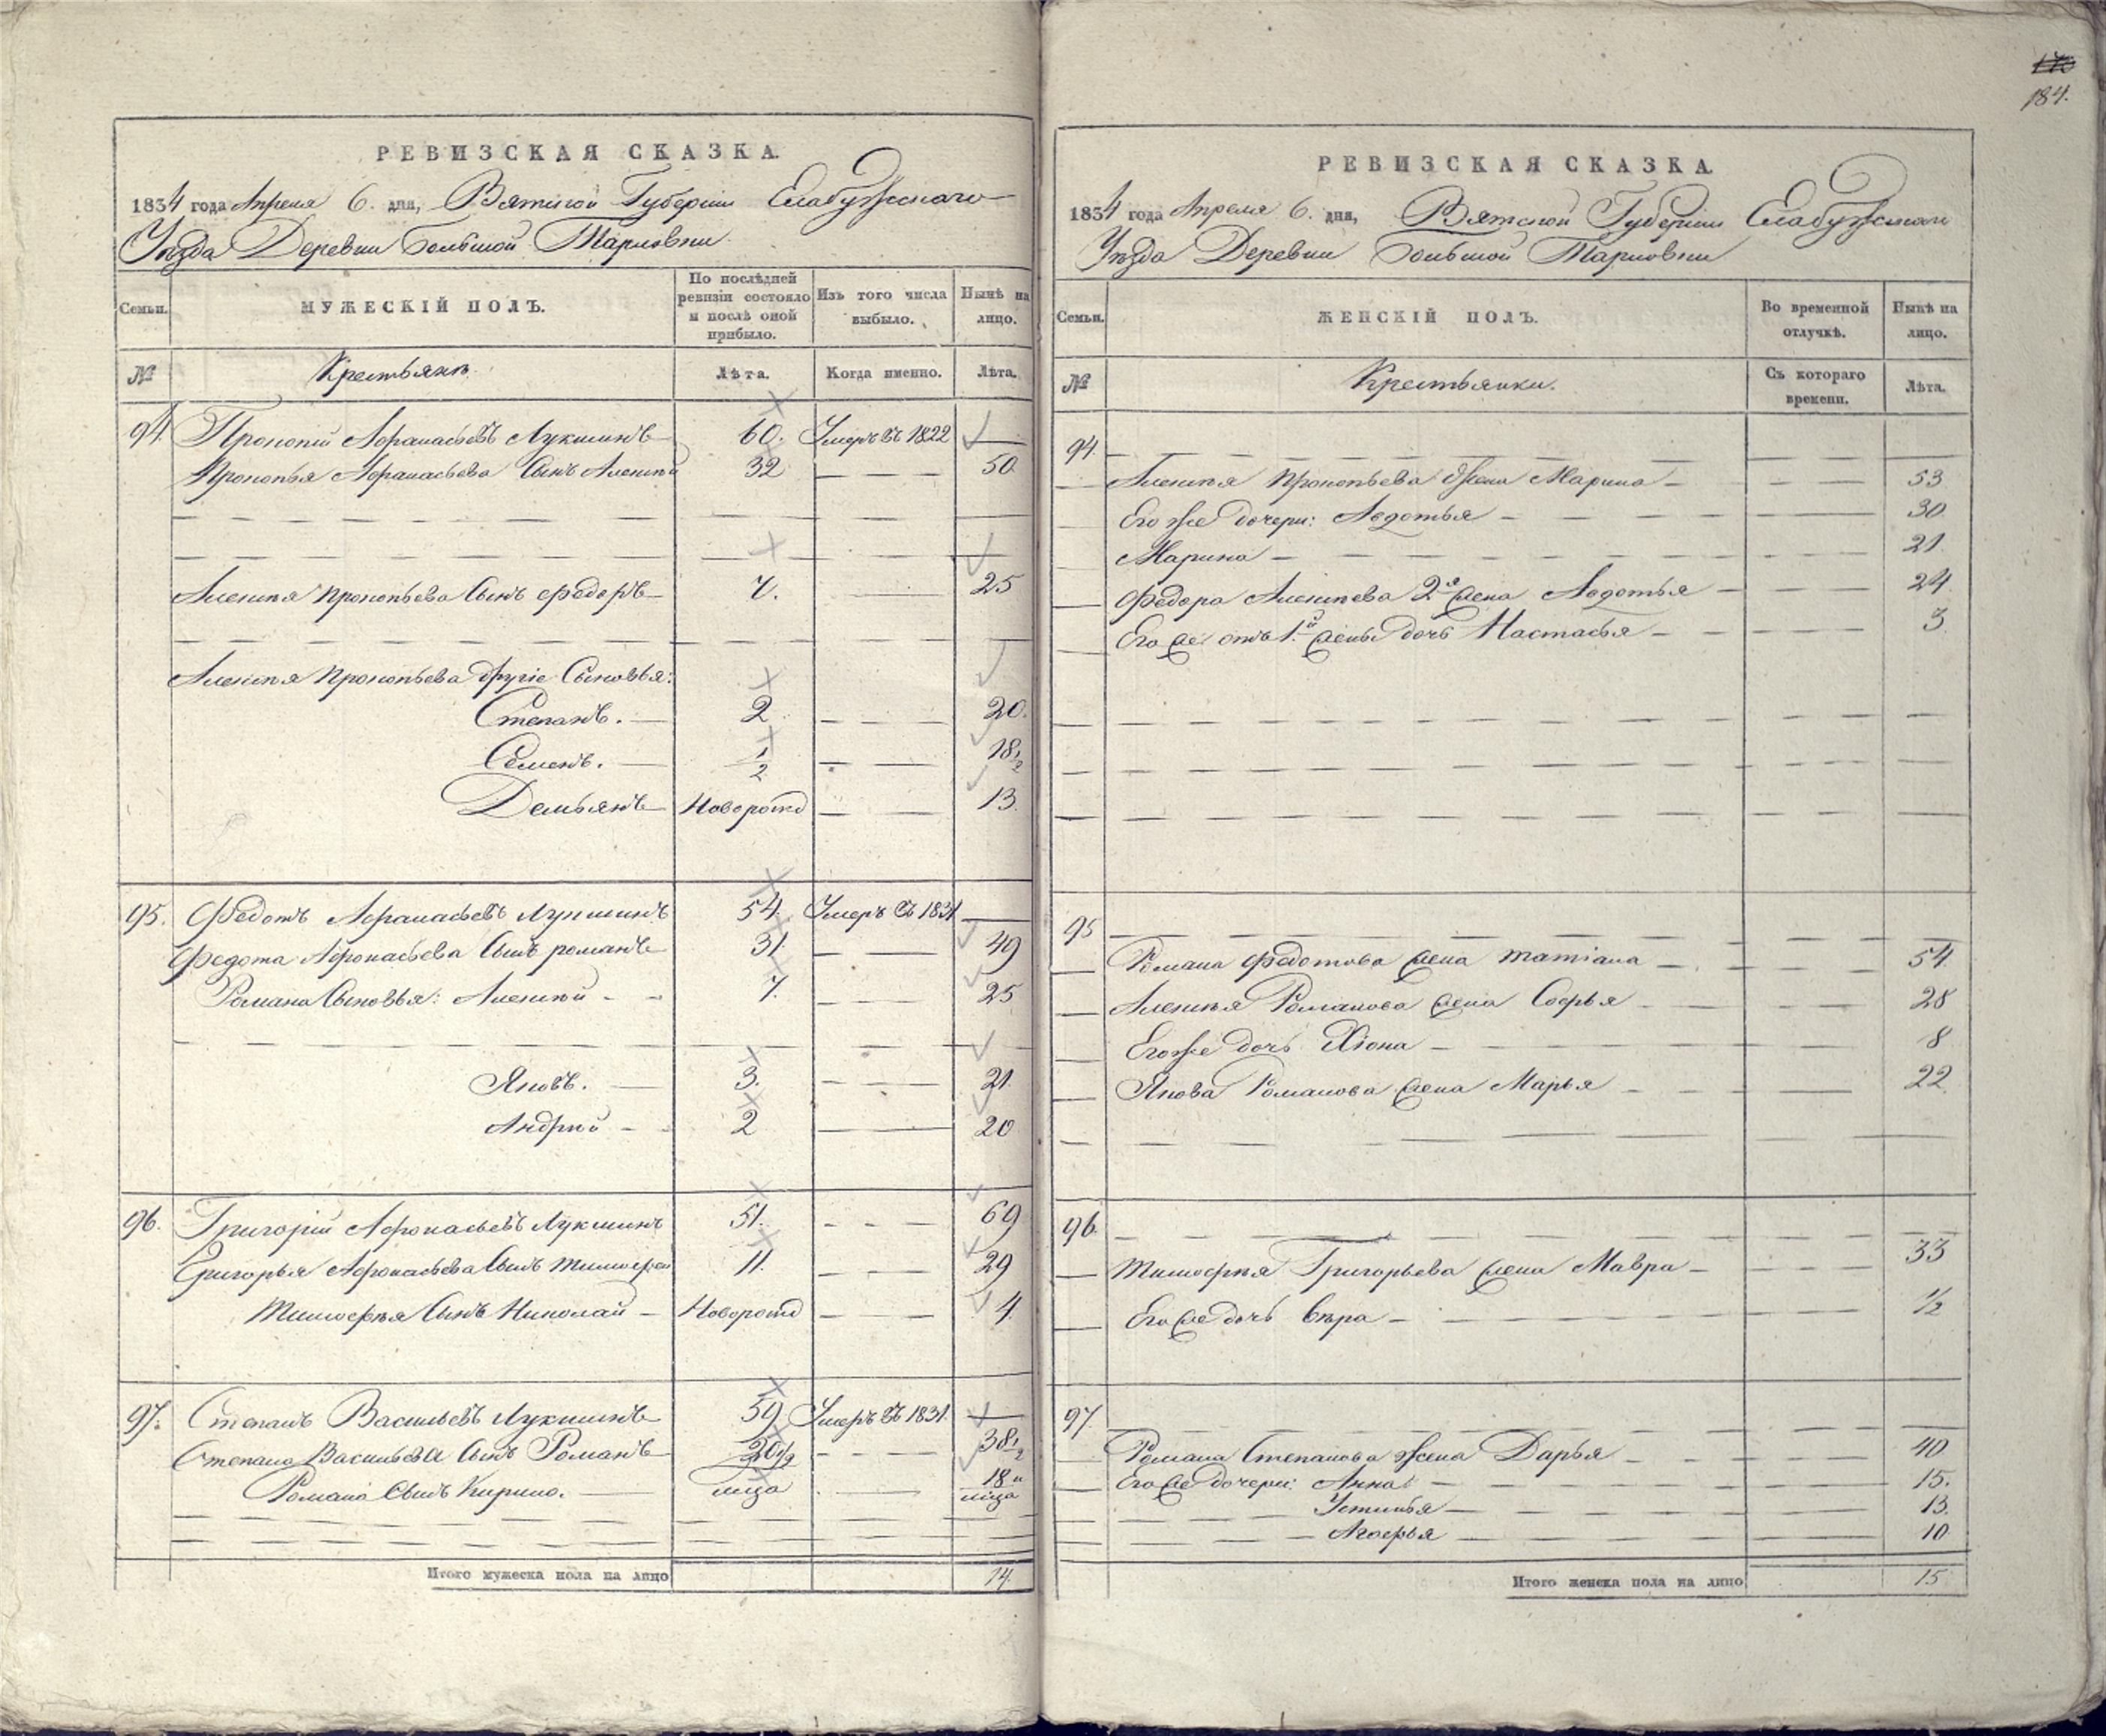 РЕВИЗСКАЯ СКАЗКА.
1834 года Апреля 6. дня, Вятской Губернiи Елабужскаго
Уѣзда Деревни Большой Тарловки
Семьи.
МУЖЕСКIЙ ПОЛЪ.
По послѣдней ревизiи состояло и послѣ оной прибыло.
Изъ того числа выбыло.
Нынѣ на лицо.
№
Крестьянъ.
Лѣта.
Когда именно.
Лѣта.
94. Прокопiй Афанасьевъ Лукшинъ 60. Умеръ въ 1822 —
Прокопья Афанасьева Сынъ Алексѣй 32 50.
Алексѣя Прокопьева Сынъ Федоръ 7. 25
Алексѣя Прокопьева другiе Сыновья:
Степанъ. 2 20.
Семенъ. 1/2 18 1/2
Демьянъ Новорожд 13.
95. Федотъ Афанасьевъ Лукшинъ 54. Умеръ въ 1831 —
Федота Афонасьева Сынъ Романъ 31. 49
Романа Сыновья: Алексѣй 7. 25
Яковъ. 3. 21.
Андрѣй 2 20
96. Григорiй Афонасьевъ Лукшинъ 51. 69
Григорья Афонасьева Сынъ Тимофей 11. 29
Тимофѣя Сынъ Николай Новорожд 4.
97. Степанъ Васильевъ Лукшинъ 59 Умеръ въ 1831. —
Степана Васильева Сынъ Романъ 20 1/2 38 1/2
Романа Сынъ Кирило.
Итого мужеска пола на лицо 14.
184.
РЕВИЗСКАЯ СКАЗКА.
1834 года Апреля 6. дня, Вятской Губернiи Елабужскаго
Уѣзда Деревни Большой Тарловки
Семьи.
ЖЕНСКIЙ ПОЛЪ.
Во временной отлучкѣ.
Нынѣ на лицо.
№
Крестьянки.
Съ котораго времени.
Лѣта.
94.
Алексѣя Прокопьева Жена Марина 53
Его же дочери: Авдотья 30.
Марина 21.
Федора Алексѣева 2я жена Авдотья 24
Его же отъ 1й жены дочь Настасья 3.
95
Романа Федотова жена Татiана 54.
Алексѣя Романова жена Софья 28
Его же дочь Хiона 8
Якова Романова жена Марья 22.
96.
Тимофѣя Григорьева жена Мавра 33
Его же дочь Вѣра 1/2
97.
Романа Степанова жена Дарья 40
Его же дочери: Анна 15.
Устинья 13.
Агафья 10
Итого женска пола на лицо 15